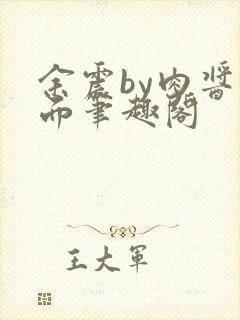 余震by肉酱
而笔趣阁
王大军